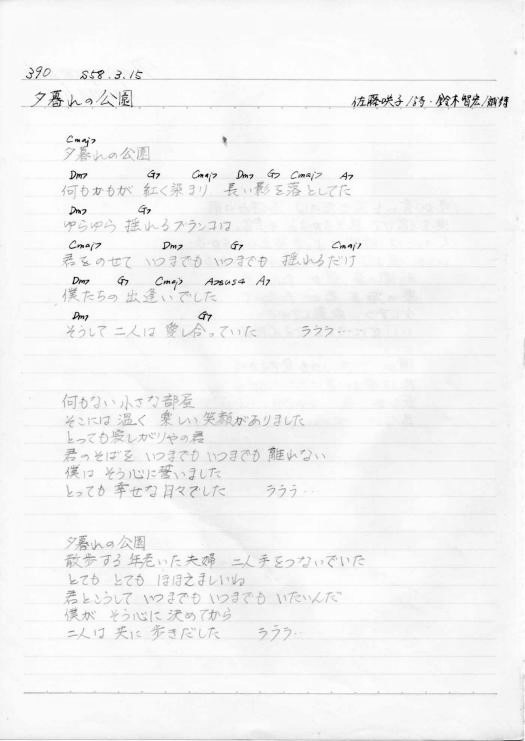 390 S58.3.15
夕暮れの公園 佐藤咲子/詞・鈴木智宏/
Cmaj7
夕暮れの公園
Dm7 G7 Cmaj7 Dm7 G7 Cmaj7 A7
何もかもが 紅く染まり 長い影を落としてた
Dm7 G7
ゆらゆら 揺れるブランコは
Cmaj7 Dm7 G7 Cmaj7
君をのせて いつまでも いつまでも 揺れるだけ
Dm7 G7 Cmaj7 A7sus4 A7
僕たちの 出逢いでした
Dm7 G7
そうして 二人は 愛し合っていた ラララ…
何もない 小さな 部屋
そこには 温く 楽しい 笑顔がありました
とっても 寂しがりやの君
君のそばを いつまでも いつまでも 離れない
僕は そう心に 誓いました
とっても 幸せな 日々でした ラララ…
夕暮れの公園
散歩する 年老いた 夫婦 二人手をつないでいた
とても とても ほほえましいね
君とこうして いつまでも いつまでも いたいんだ
僕が そう心に 決めてから
二人は 共に 歩きだした ラララ…